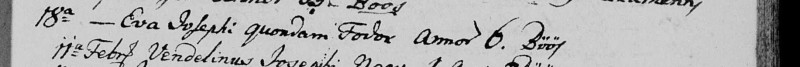 18a — Eva Josephi quondam Fodor Annor 6. Böös
11a Febr Vendelinus Josephi